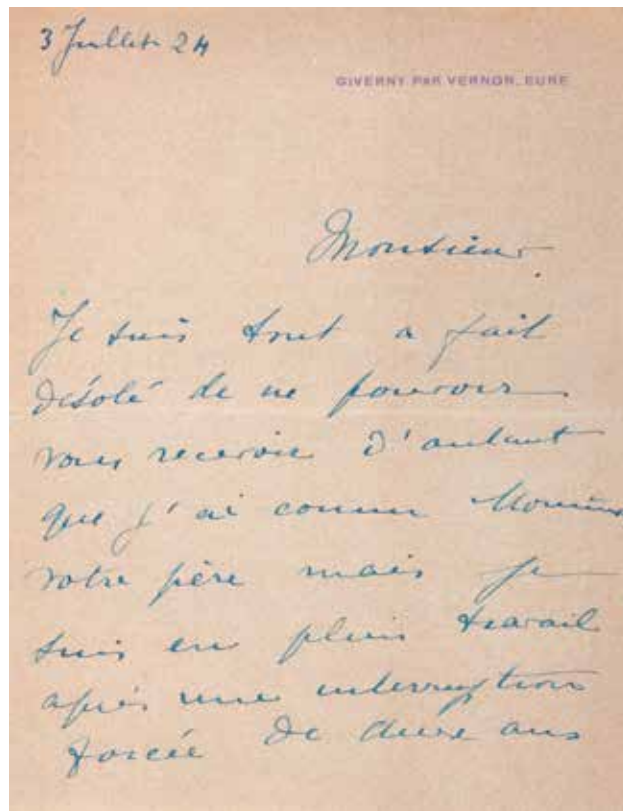 3 Juillet 24
GIVERNY PAR VERNON, EURE
Monsieur
Je suis tout a fait
désolé de ne pouvoir
vous recevoir d'autant
que j'ai connu Monsieur
votre père mais je
suis en plein travail
après une interruption
forcée de deux ans